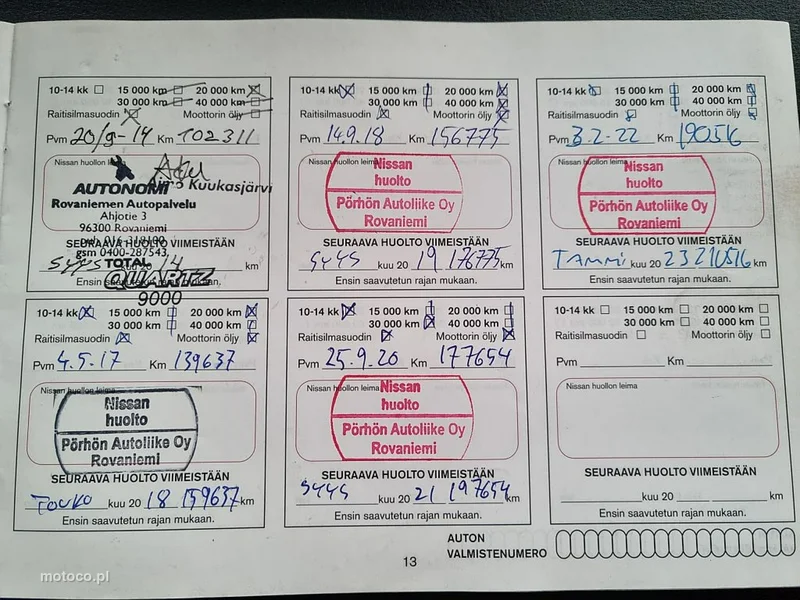 10-14 kk 15 000 km 20 000 km
30 000 km 40 000 km
Raitisilmasuodin Moottorin öljy
Pvm 20/9-14 Km 102311
Nissan huollon
AUTONOMI Kuukasjärvi
Rovaniemen Autopalvelu
Ahjotie 3
96300 Rovaniemi
SEURAAVA HUOLTO VIIMEISTÄÄN
gsm 0400-287543,
SYYS kuu 20 14 km
TOTAL
QUARTZ
9000
Ensin saavutetun rajan mukaan.
10-14 kk 15 000 km 20 000 km
30 000 km 40 000 km
Raitisilmasuodin Moottorin öljy
Pvm 14.9.18 Km 156775
Nissan huollon leima
Nissan
huolto
Pörhön Autoliike Oy
Rovaniemi
SEURAAVA HUOLTO VIIMEISTÄÄN
SYYS kuu 20 19 176775 km
Ensin saavutetun rajan mukaan.
10-14 kk 15 000 km 20 000 km
30 000 km 40 000 km
Raitisilmasuodin Moottorin öljy
Pvm 3.2.22 Km 190516
Nissan huollon leima
Nissan
huolto
Pörhön Autoliike Oy
Rovaniemi
SEURAAVA HUOLTO VIIMEISTÄÄN
TAMMI kuu 20 23 210516 km
Ensin saavutetun rajan mukaan.
10-14 kk 15 000 km 20 000 km
30 000 km 40 000 km
Raitisilmasuodin Moottorin öljy
Pvm 4.5.17 Km 139637
Nissan huollon leima
Nissan
huolto
Pörhön Autoliike Oy
Rovaniemi
SEURAAVA HUOLTO VIIMEISTÄÄN
Touko kuu 20 18 159637 km
Ensin saavutetun rajan mukaan.
10-14 kk 15 000 km 20 000 km
30 000 km 40 000 km
Raitisilmasuodin Moottorin öljy
Pvm 25.9.20 Km 177654
Nissan huollon leima
Nissan
huolto
Pörhön Autoliike Oy
Rovaniemi
SEURAAVA HUOLTO VIIMEISTÄÄN
SYYS kuu 20 21 197654 km
Ensin saavutetun rajan mukaan.
10-14 kk 15 000 km 20 000 km
30 000 km 40 000 km
Raitisilmasuodin Moottorin öljy
Pvm Km
Nissan huollon leima
SEURAAVA HUOLTO VIIMEISTÄÄN
kuu 20 km
Ensin saavutetun rajan mukaan.
AUTON
VALMISTENUMERO
13
motoco.pl